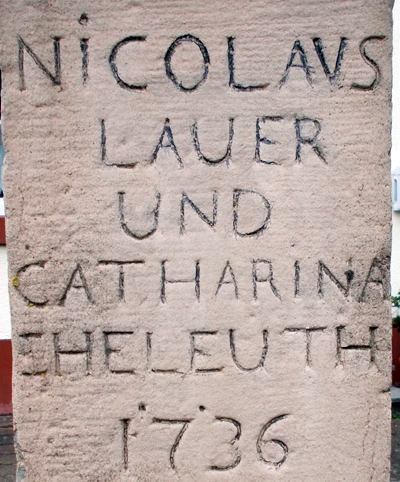 NiCOLAVS
LAUER
UND
CATHARINA
EHELEUTH
1736